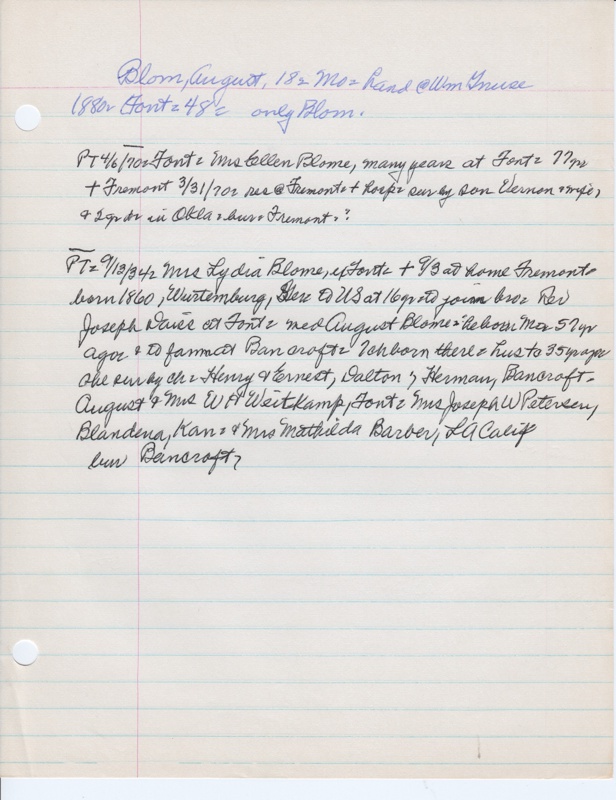 Blom, August, 18= Mo= hand @ Wm Gruse
1880= Font= 48= only Blom.
PT 4/6/70= Font= Mrs Ellen Blome, many years at Font= 77yr
+ Fremont 3/31/70= res @ Fremont= + hosp= sur by son Vernon & wife,
& 2 gr dr in Okla= bur= Fremont=?
PT= 9/13/34= Mrs Lydia Blome, of Font= + 9/3 at home Fremont=
born 1860, Wurtemburg, Ger= to US at 16yr to join bro= Rev
Joseph Daiss at Font= med August Blome= he born Mo= 57yr
ago= & to farm at Bancroft= 7ch born there= hus to 35yr ago
she sur by ch= Henry & Ernest, Dalton, Herman, Bancroft=
August & Mrs W H Weitkamp, Font= Mrs Joseph W Petersen,
Blandena, Kan= & Mrs Mathilda Barber, LA Calif
bur Bancroft,